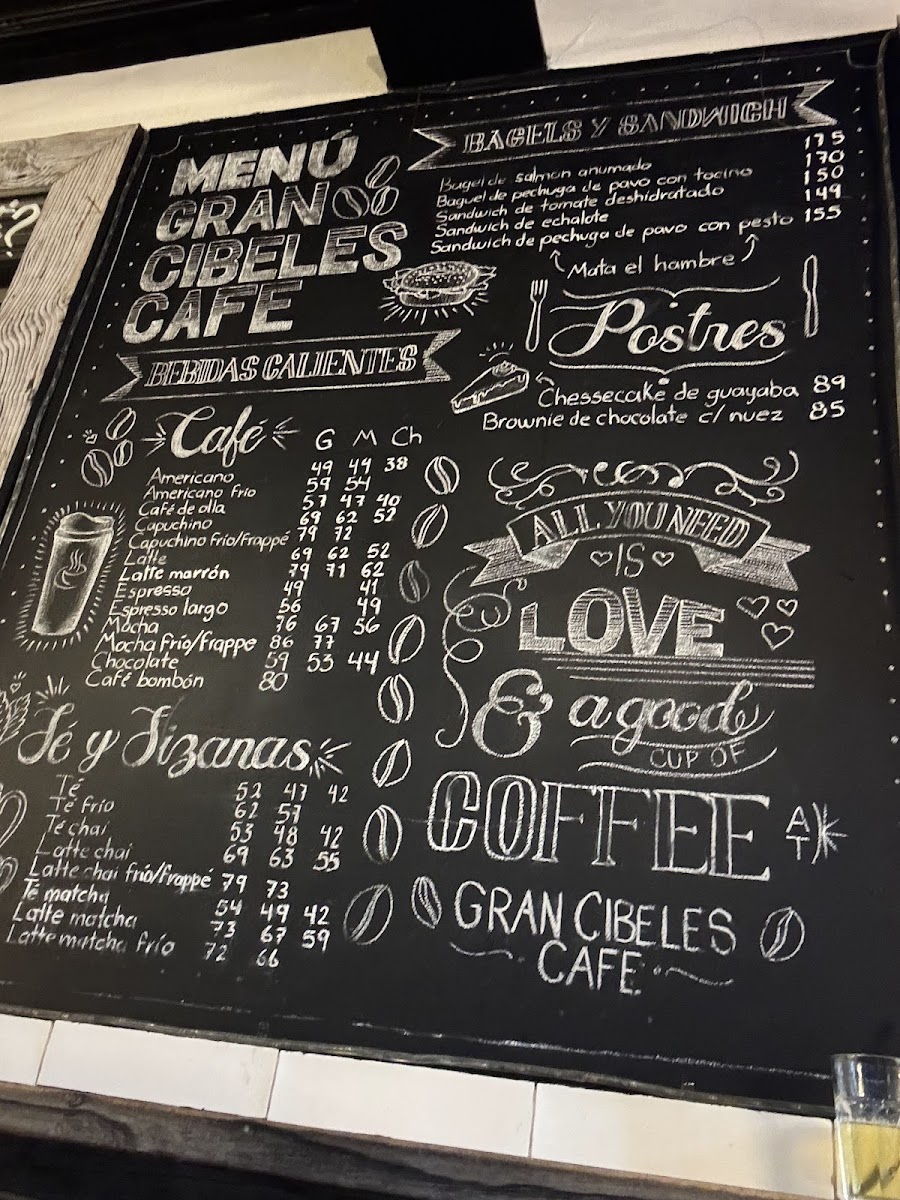 MENÚ
GRAN
CIBELES
CAFE
BEBIDAS CALIENTES
Café G M Ch
Americano 49 44 38
Americano Frio 59 54
Café de olla 57 47 40
Capuchino 69 62 52
Capuchino Frio/Frappé 79 72
Latte 69 62 52
Latte marrón 79 71 62
Espresso 49 41
Espresso largo 56 49
Mocha 76 67 56
Mocha Frío/frappe 86 77
Chocolate 59 53 44
Café bombón 80
Té y Tizanas
Té 52 47 42
Té frío 62 57
Té chai 53 48 42
Latte chai 69 63 55
Latte chai frío/frappé 79 73
Té matcha 54 49 42
Latte matcha 73 67 59
Latte matcha frío 72 66
BAGELS Y SANDWICH
Bagel de salmon ahumado 175
Baguel de pechuga de pavo con tocino 170
Sandwich de tomate deshidratado 150
Sandwich de echalote 149
Sandwich de pechuga de pavo con pesto 155
Mata el hambre
Postres
Chessecake de guayaba 89
Brownie de chocolate c/ nuez 85
ALL YOU NEED
IS
LOVE
& a good
CUP OF
COFFEE AT
GRAN CIBELES
CAFE